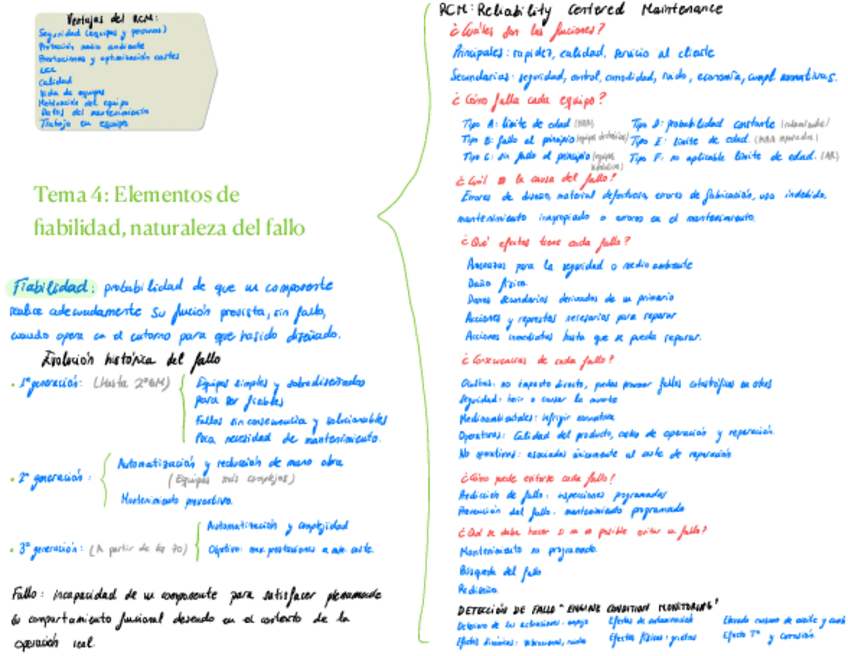 Ventajas del RCM:
Seguridad (equipos y personas)
Protección medio ambiente
Prestaciones y optimización costes
LCC
Calidad
Vida de equipos
Motivación del equipo
Datos del mantenimiento
Trabajo en equipo
Tema 4: Elementos de
fiabilidad, naturaleza del fallo
Fiabilidad: probabilidad de que un componente
realice adecuadamente su función prevista, sin fallo,
cuando opera en el entorno para que ha sido diseñado.
Evolución histórica del fallo
• 1ª generación: (Hasta 2ªGM)
Equipos simples y sobrediseñados
para ser fiables
Fallos sin consecuencia y solucionables
Poca necesidad de mantenimiento.
• 2ª generación:
Automatización y reducción de mano obra
(Equipos más complejos)
Mantenimiento preventivo.
• 3ª generación: (A partir de los 70)
Automatización y complejidad
Objetivo: max prestaciones a min coste.
Fallo: incapacidad de un componente para satisfacer plenamente
su comportamiento funcional deseado en el contexto de la
operación real
RCM: Reliability Centered Maintenance
¿Cuáles son las funciones?
Principales: rapidez, calidad, servicio al cliente
Secundarias: seguridad, control, comodidad, ruido, economía, cumpl normativas.
¿Cómo falla cada equipo?
Tipo A: límite de edad
Tipo D: probabilidad constante
Tipo B: fallo al principio
Tipo E: límite de edad.
Tipo C: sin fallo al principio
Tipo F: no aplicable límite de edad. (AR)
¿Cuál es la causa del fallo?
Errores de diseño, material defectuoso, errores de fabricación, uso indebido,
mantenimiento inapropiado o errores en el mantenimiento.
¿Qué efectos tiene cada fallo?
Amenazas para la seguridad o medio ambiente
Daño físico
Daños secundarios derivados de un primario
Acciones y repuestos necesarios para reparar
Acciones inmediatas hasta que se pueda reparar.
¿Consecuencias de cada fallo?
Ocultas: no impacto directo, pueden provocar fallos catastróficos en otros
Seguridad: herir o causar la muerte
Medioambientales: infrigir normativa
Operativas: Calidad del producto, costes de operación y reparación
No operativas: asociadas únicamente al coste de reparación
¿Cómo puede evitarse cada fallo?
Predicción de fallo: inspecciones programadas
Prevención del fallo: mantenimiento programado
¿Qué se debe hacer si no es posible evitar un fallo?
Mantenimiento no programado.
Búsqueda del fallo
Rediseño
DETECCIÓN DE FALLO "ENGINE CONDITION MONITORING"
Deterioro de las actuaciones: empuje
Efectos de contaminación
Elevado consumo de aceite y comb
Efectos dinámicos: vibraciones, ruido
Efectos físicos: grietas
Efecto Tª y corrosión